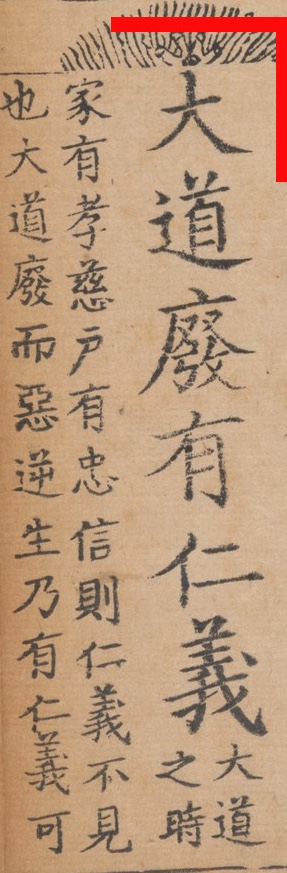 大道廢有仁義
大道
之時
家有孝慈户有忠信則仁義不見
也大道廢而惡逆生乃有仁義可